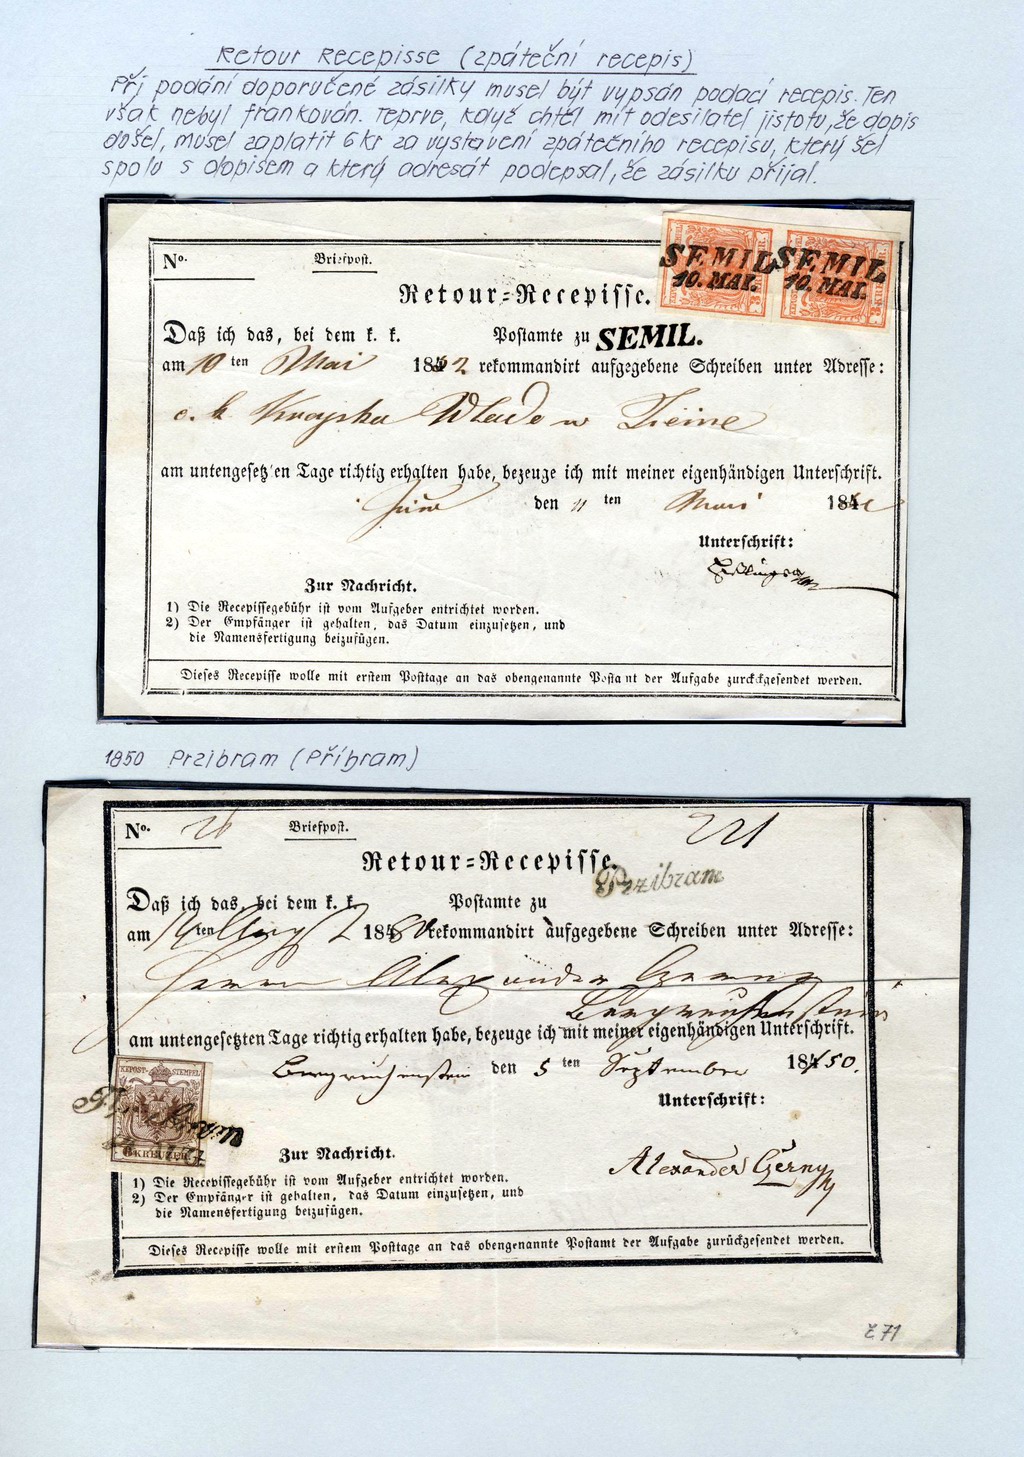 Retour Recepisse (zpáteční recepis)
Při podání doporučené zásilky musel být vypsán podací recepis. Ten
však nebyl frankován. Teprve, když chtěl mít odesilatel jistotu, že dopis
došel, musel zaplatit 6 kr za vystavení zpátečního recepisu, který šel
spolu s dopisem a který adresát podepsal, že zásilku přijal.
SEMIL SEMIL
10. MAI. 10. MAI.
No. Briefpost.
Retour=Recepisse.
Daß ich das, bei dem k. k. Postamte zu SEMIL.
am 10 ten Mai 1852 rekommandirt aufgegebene Schreiben unter Adresse:
c. k. Krajska Wlade w
am untengesetz'en Tage richtig erhalten habe, bezeuge ich mit meiner eigenhändigen Unterschrift.
den 11 ten Mai 185
Unterschrift:
Zur Nachricht.
1) Die Recepissegebühr ist vom Aufgeber entrichtet worden.
2) Der Empfänger ist gehalten, das Datum einzusetzen, und
die Namensfertigung beizufügen.
Dieses Recepisse wolle mit erstem Posttage an das obengenannte Postamt der Aufgabe zurückgesendet werden.
1850 Przibram (Příbram)
No. 26 Briefpost. 221
Retour=Recepisse.
Przibram
Daß ich das, bei dem k. k. Postamte zu
am ten 1850 rekommandirt aufgegebene Schreiben unter Adresse:
Herrn Alexander Czerny
Bergreichenstein
am untengesetzten Tage richtig erhalten habe, bezeuge ich mit meiner eigenhändigen Unterschrift.
Bergreichenstein den 5 ten September 1850.
Unterschrift:
KK POST-STEMPEL
6 KREUZER
Alexander Czerny
Zur Nachricht.
1) Die Recepissegebühr ist vom Aufgeber entrichtet worden.
2) Der Empfänger ist gehalten, das Datum einzusetzen, und
die Namensfertigung beizufügen.
Dieses Recepisse wolle mit erstem Posttage an das obengenannte Postamt der Aufgabe zurückgesendet werden.
Z 71